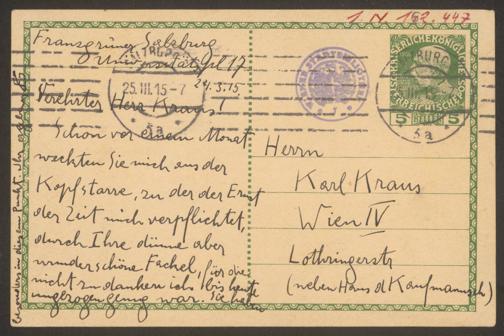 1. N 162.447
Franz Grüner Salzburg
Universitätspl 17
24.3.15
Verehrter Herr Kraus!
Schon vor einem Monat
weckten Sie mich aus der
Kopfstarre, zu der der Ernst
der Zeit mich verpflichtet,
durch Ihre dünne aber
wunderschöne Fackel, für die
nicht zu danken ich bis heute
ungezogen genug war. Sie haben
besonders in diesem Punkt
25.III.15-7
5a
SALZBURG
5a
5 HELLER 5
Herrn
Karl Kraus
Wien IV
Lothringerstr
(neben Haus d Kaufmannsch)